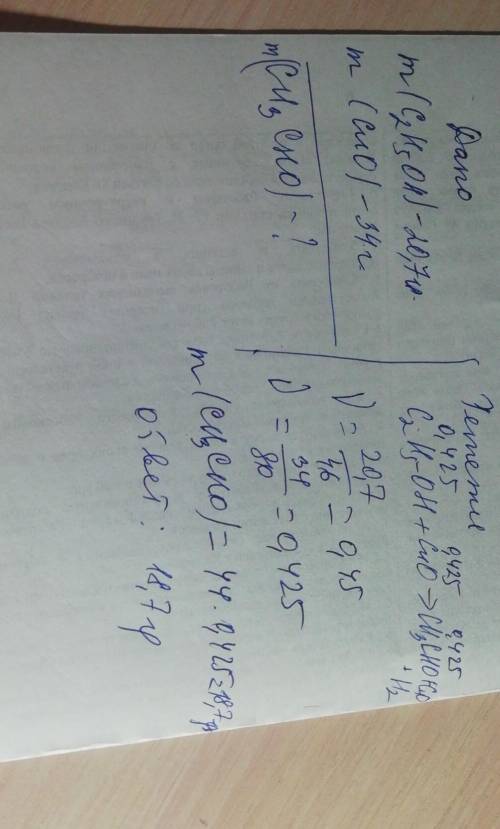 Дано
m(C₂H₅OH) - 20,7 гр.
m (CuO) - 34 г.
m(CH₃CHO) - ?
0,425 0,425 0,425
C₂H₅OH + CuO → CH₃CHO +
+ H₂
ν = 20,7/46 = 0,45
ν = 34/80 = 0,425
m(CH₃CHO) = 44 · 0,425 = 18,7 гр
ответ : 18,7 гр